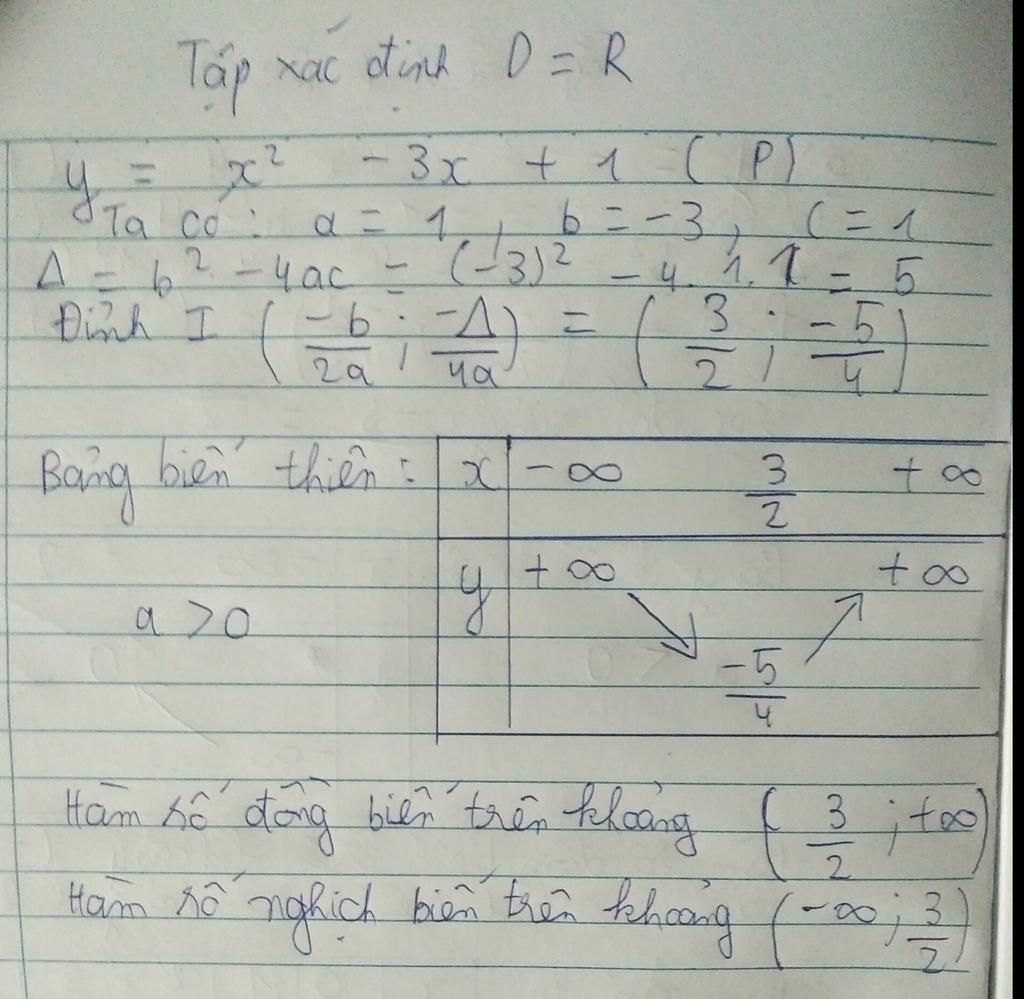 Tập xác định D = R
y = x² - 3x + 1 (P)
Ta có: a = 1, b = -3, C = 1
Δ = b² - 4ac = (-3)² - 4.1.1 = 5
Đỉnh I (-b/2a ; -Δ/4a) = (3/2 ; -5/4)
Bảng biến thiên: x -∞ 3/2 +∞
y +∞ +∞
a > 0
-5/4
Hàm số đồng biến trên khoảng (3/2 ; +∞)
Hàm số nghịch biến trên khoảng (-∞ ; 3/2)